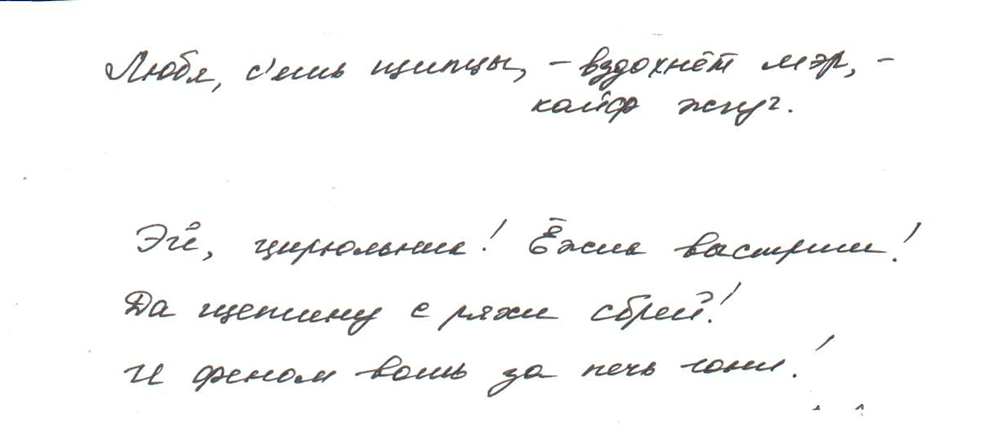 Любя, съешь щипцы, – вздохнёт мэр, –
кайф жгуч.
Эй, цирюльник! Ёжик выстриги!
Да щетину с ряхи сбрей!
И феном вошь за печь гони!